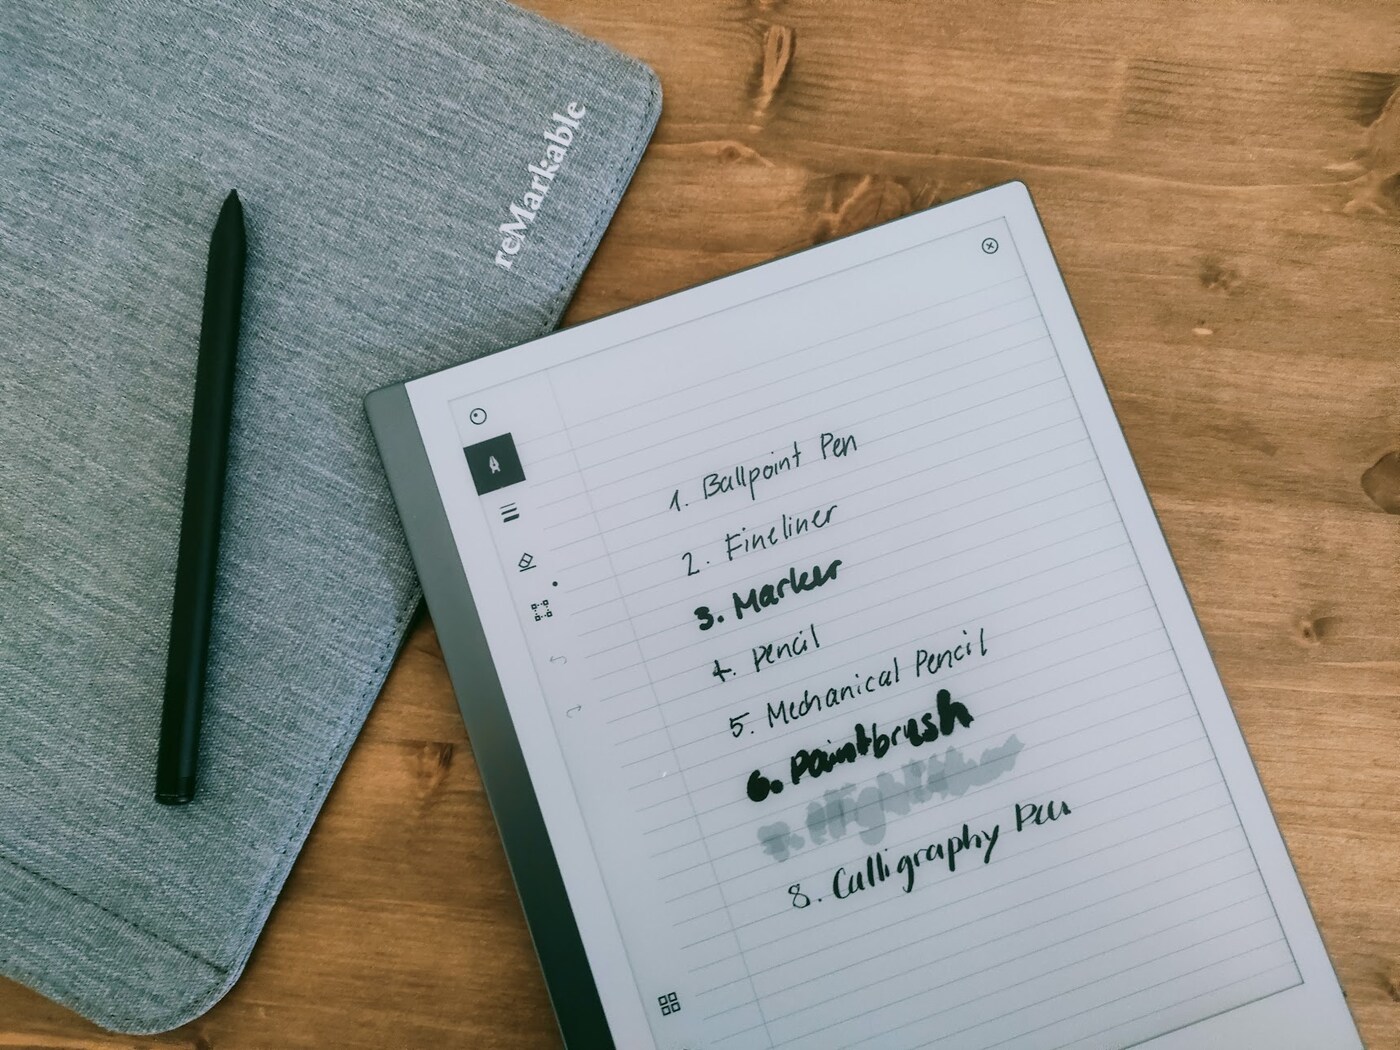 reMarkable
1. Ballpoint Pen
2. Fineliner
3. Marker
4. Pencil
5. Mechanical Pencil
6. Paintbrush
7. Highlighter
8. Calligraphy Pen